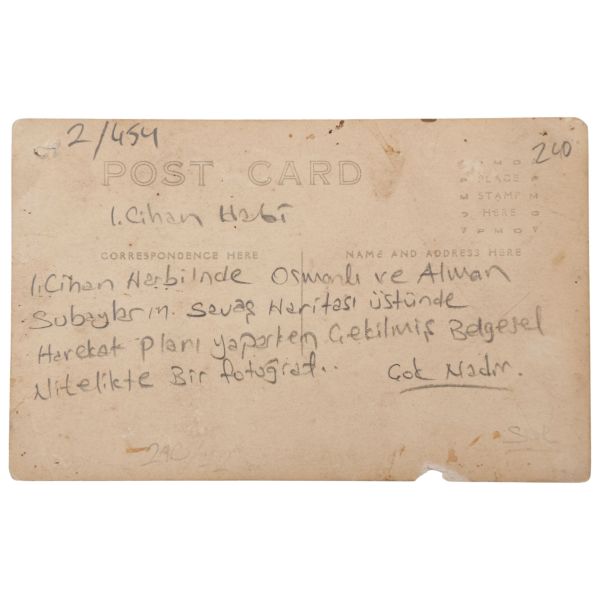 2/454
240
POST CARD
PLACE
STAMP
HERE
1. Cihan Harbi
CORRESPONDENCE HERE
NAME AND ADDRESS HERE
1. Cihan Harbi'nde Osmanlı ve Alman
Subayların. Savaş Haritası üstünde
Harekat planı yaparken Çekilmiş Belgesel
Nitelikte Bir fotoğraf..
Çok Nadir.